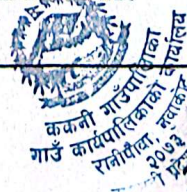 ककनी गाउँपालिका
गाउँ कार्यपालिकाको कार्यालय
रानीपौवा, नुवाकोट
२०७३